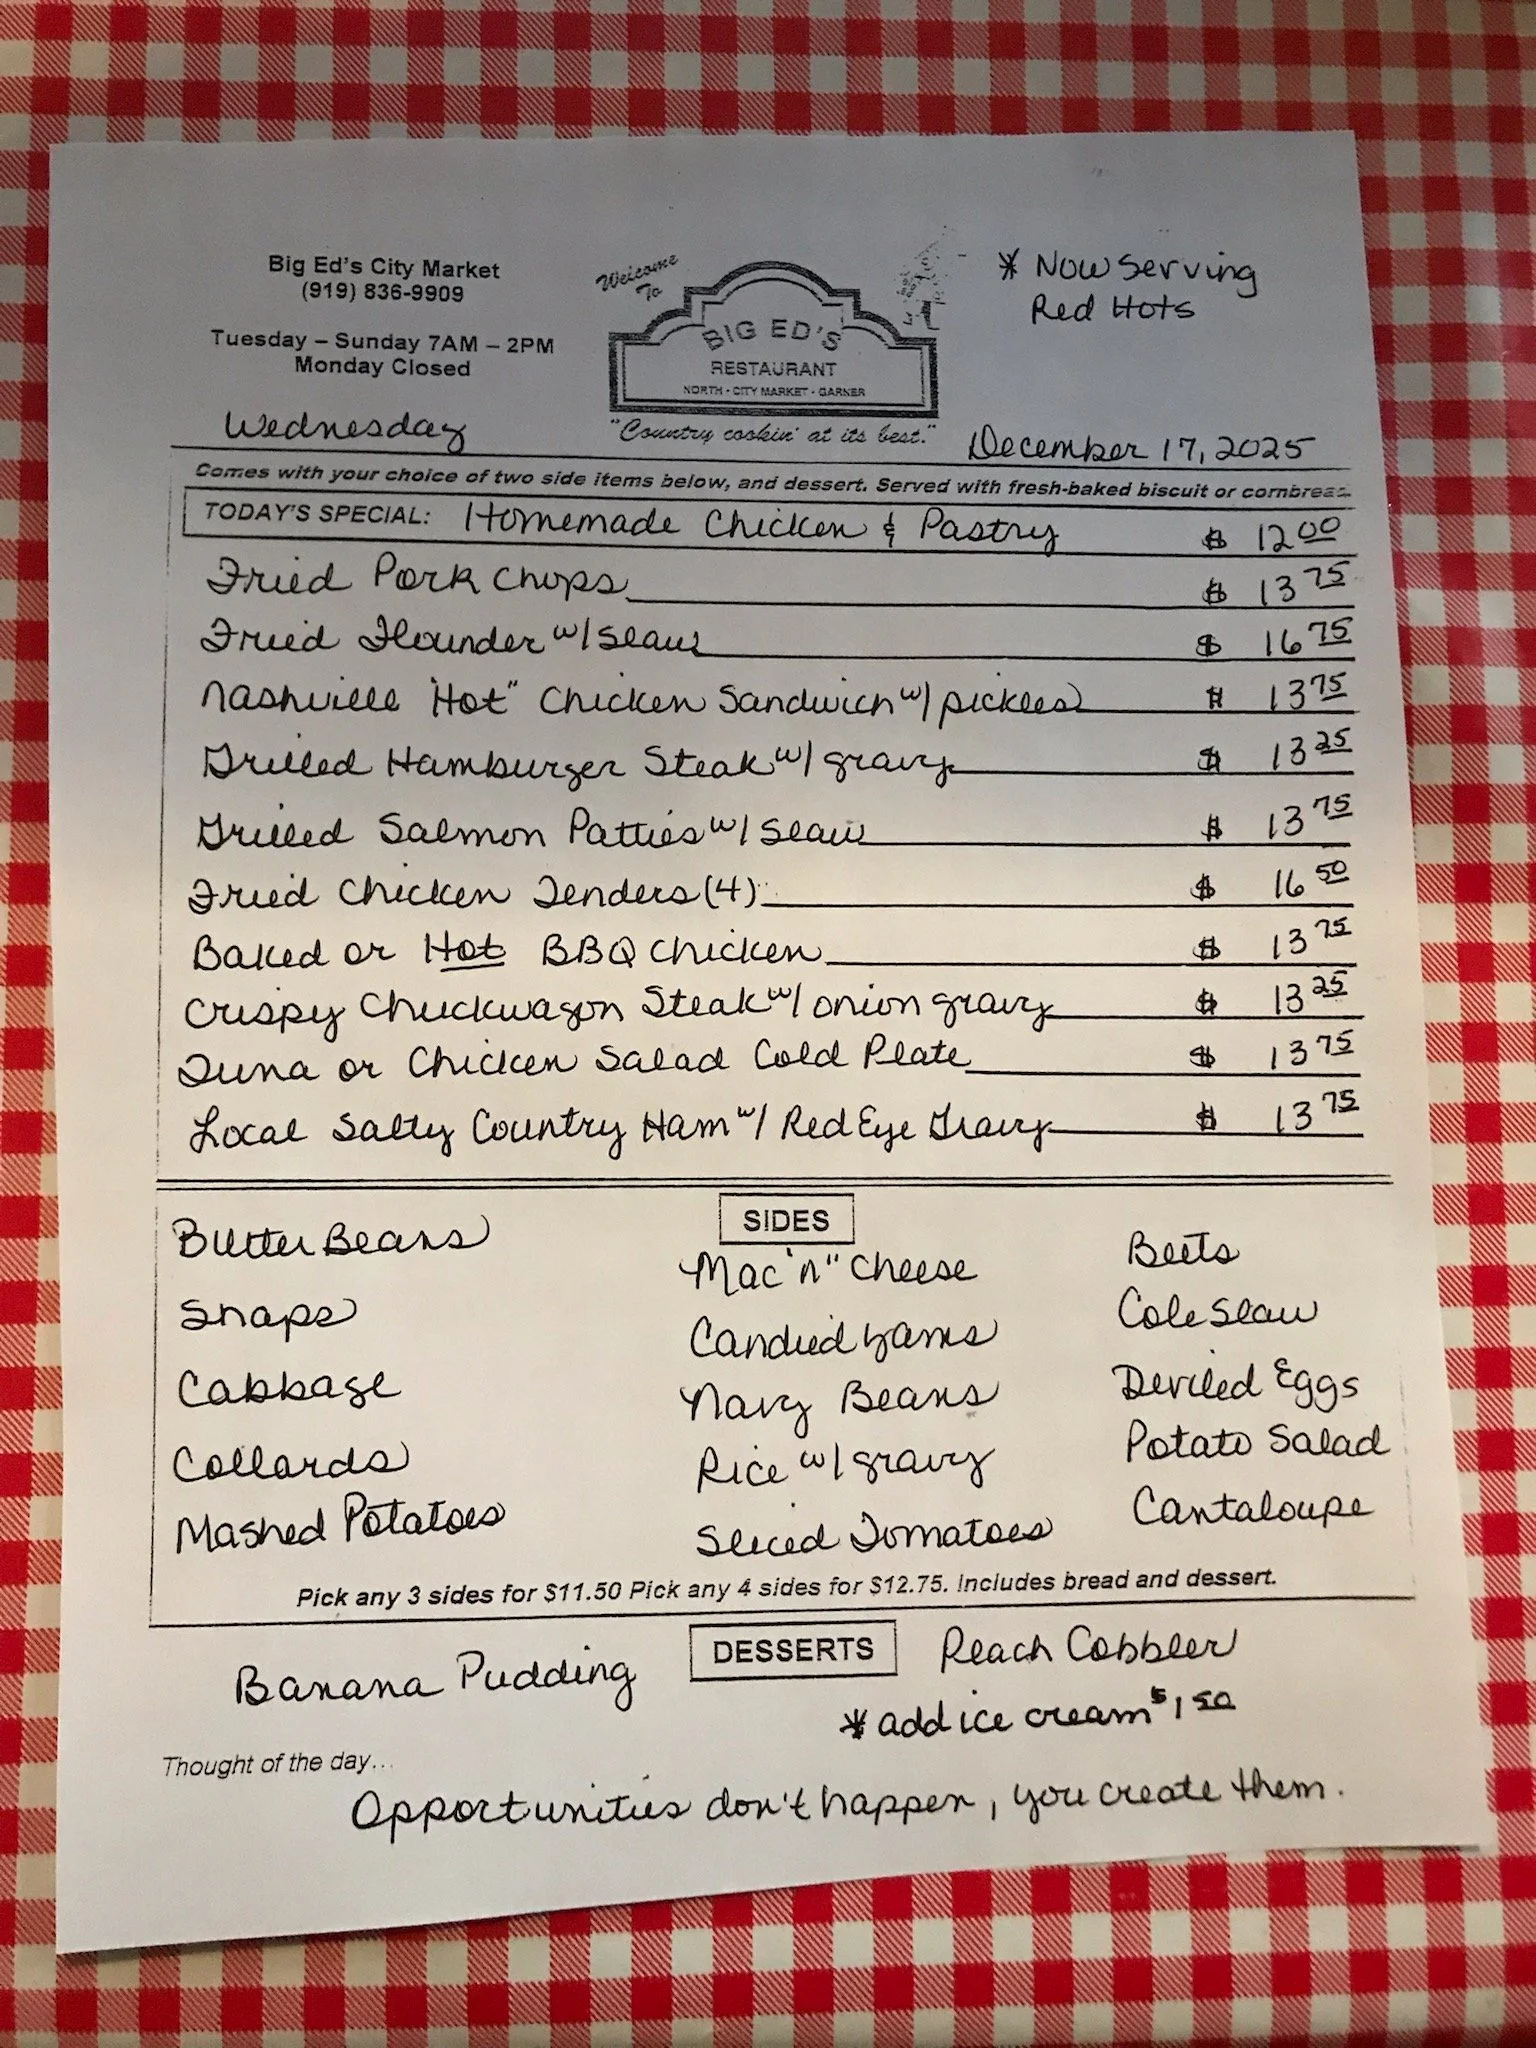 Big Ed's City Market
(919) 836-9909
Tuesday – Sunday 7AM – 2PM
Monday Closed
Welcome
To
BIG ED'S
RESTAURANT
NORTH - CITY MARKET - GARNER
"Country cookin' at its best."
* Now Serving
Red Hots
Wednesday
December 17, 2025
Comes with your choice of two side items below, and dessert. Served with fresh-baked biscuit or cornbread.
TODAY'S SPECIAL: Homemade Chicken & Pastry $ 12 00
Fried Pork Chops $ 13 75
Fried Flounder w/ slaw $ 16 75
Nashville "Hot" Chicken Sandwich w/ pickles $ 13 75
Grilled Hamburger Steak w/ gravy $ 13 25
Grilled Salmon Patties w/ slaw $ 13 75
Fried Chicken Tenders (4) $ 16 50
Baked or Hot BBQ Chicken $ 13 75
Crispy Chuckwagon Steak w/ onion gravy $ 13 25
Tuna or Chicken Salad Cold Plate $ 13 75
Local Salty Country Ham w/ Red Eye Gravy $ 13 75
SIDES
Butter Beans
Snaps
Cabbage
Collards
Mashed Potatoes
Mac 'n" Cheese
Candied Yams
Navy Beans
Rice w/ gravy
Sliced Tomatoes
Beets
Cole Slaw
Deviled Eggs
Potato Salad
Cantaloupe
Pick any 3 sides for $11.50 Pick any 4 sides for $12.75. Includes bread and dessert.
DESSERTS
Banana Pudding
Peach Cobbler
* add ice cream $1.50
Thought of the day...
Opportunities don't happen, you create them.